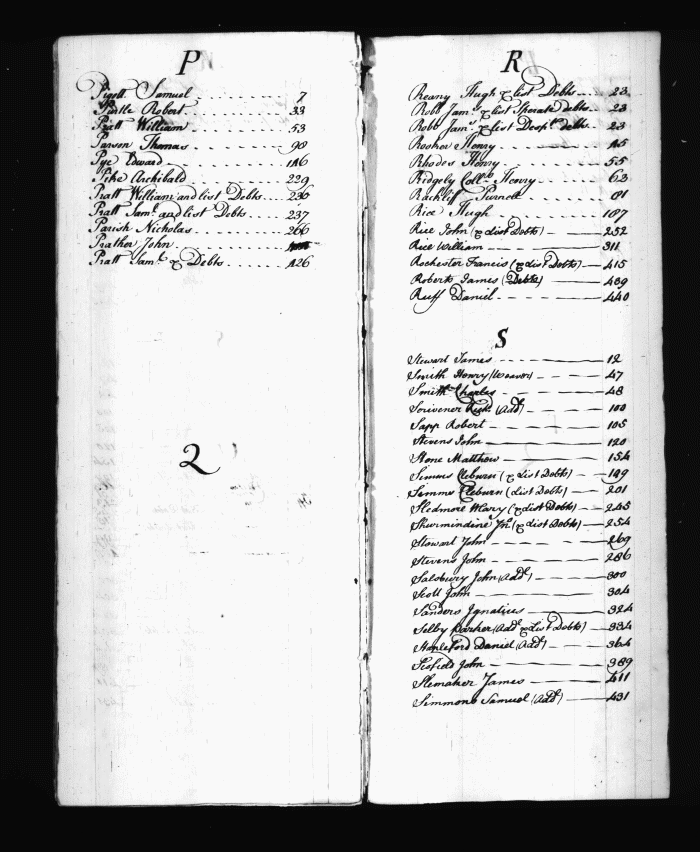 P
Pigott Samuel 7
Pindle Robert 33
Pratt William 53
Parson Thomas 98
Pye Edward 186
Pike Archibald 229
Pratt William and list Debts 236
Pratt Sam.l and list Debts 237
Parish Nicholas 266
Prather John
Pratt Sam.l & Debts 426
Q
R
Reany Hugh & list Debts 23
Robb Jam.s & list Sperate debts 23
Robb Jam.s & list Desp.t debts 23
Rooker Henry 45
Rhodes Henry 55
Ridgely Coll.o Henry 62
Rackliff Purnell 81
Rice Hugh 187
Rice John (& list Debts) 252
Rice William 311
Rochester Francis (& list Debts) 415
Roberts James (Debts) 439
Ruff Daniel 440
S
Stewart James 12
Smith Henry (Weaver) 47
Smith Charles 48
Scrivener Rich.d (Add.l) 100
Sapp Robert 105
Stevens John 120
Stone Matthew 154
Simms Cleburn (& List Debts) 199
Simms Cleburn (list Debts) 201
Sledmore Mary (& list Debts) 245
Skurmindine Jn.o (& list Debts) 254
Stewart John 269
Stevens John 286
Salsbury John (Add.l) 300
Scott John 304
Sanders Ignatius 324
Selby Parker (Add.l & List Debts) 334
Stapleford Daniel (Add.l) 364
Scofield John 389
Slemaker James 411
Simmons Samuel (Add.l) 431